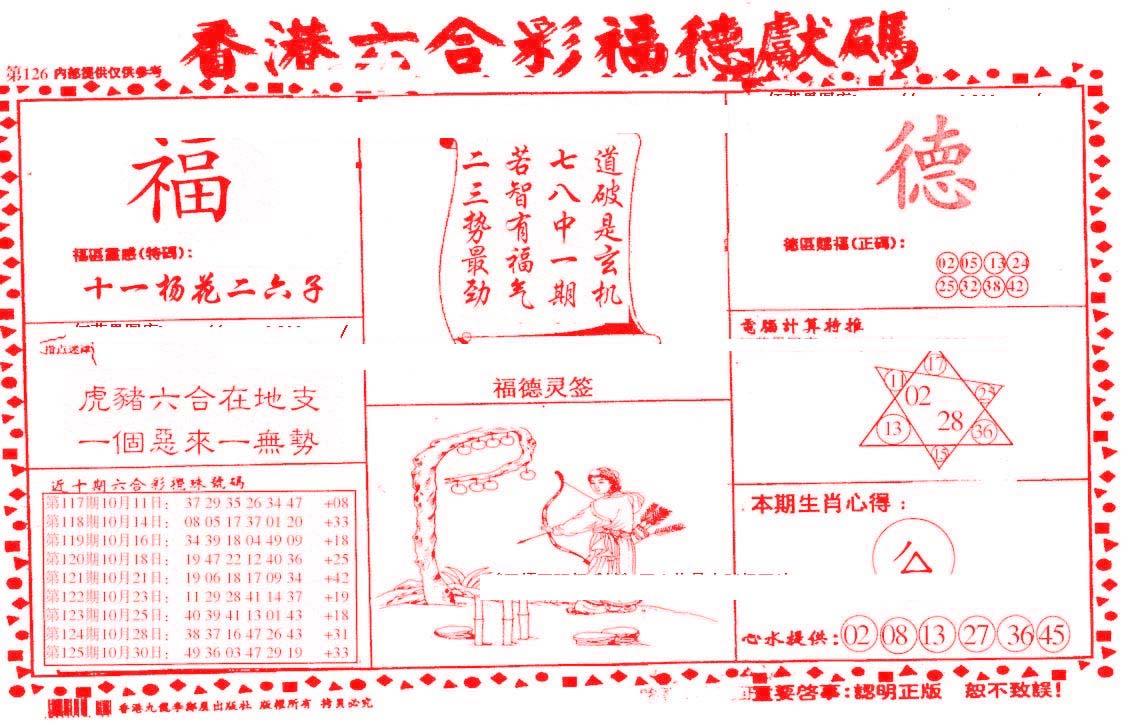 香港六合彩福德獻碼
第126 內部提供仅供参考
福
福區靈感(特碼):
十一杨花二六子
道破是玄机
七八中一期
若智有福气
二三势最劲
德
德區赐福(正碼):
02 05 13 24
25 32 38 42
指点迷津
虎豬六合在地支
一個惡來一無勢
電腦計算特推
17
11 02 25
13 28 36
15
福德灵签
近十期六合彩攪珠號碼
第117期10月11日: 37 29 35 26 34 47 +08
第118期10月14日: 08 05 17 37 01 20 +33
第119期10月16日: 34 39 18 04 49 09 +18
第120期10月18日: 19 47 22 12 40 36 +25
第121期10月21日: 19 06 18 17 09 34 +42
第122期10月23日: 11 29 28 41 14 37 +19
第123期10月25日: 40 39 41 13 01 43 +18
第124期10月28日: 38 37 16 47 26 43 +31
第125期10月30日: 49 36 03 47 29 19 +33
本期生肖心得:
公
心水提供: 02 08 13 27 36 45
重要啓事:認明正版 恕不致誤!
香港九龍季鄰屋出版社 版權所有 拷貝必究